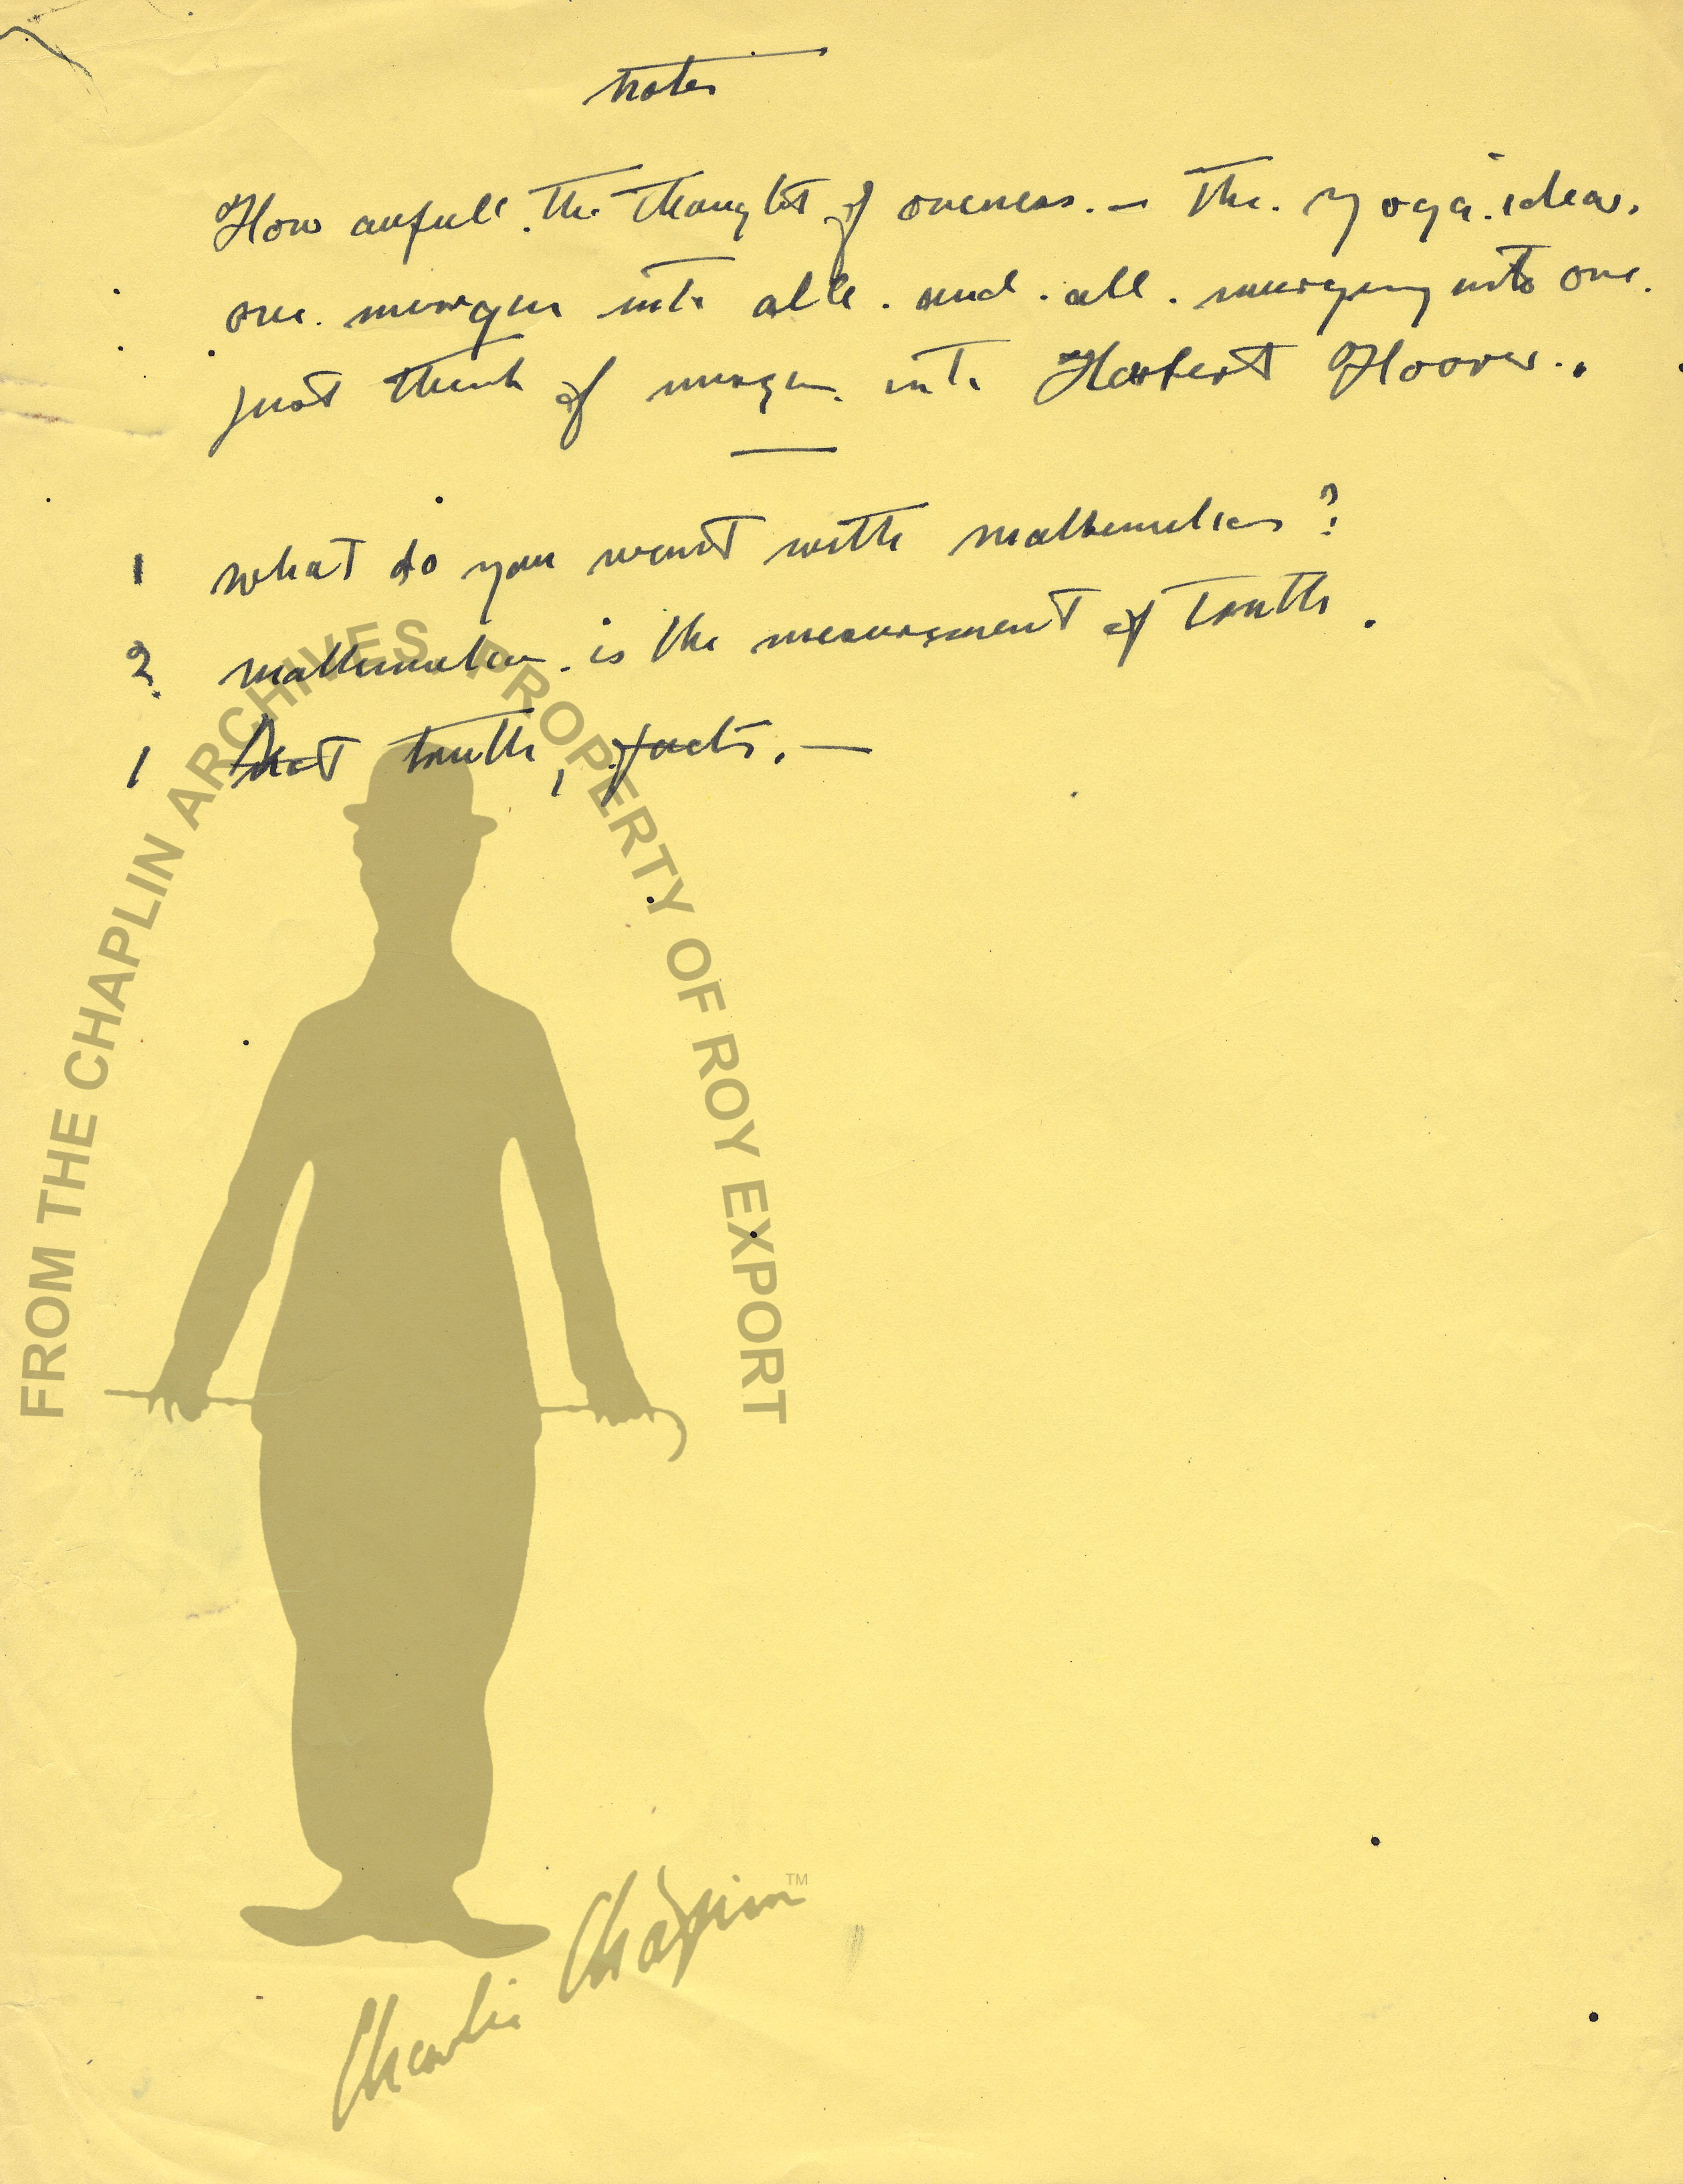 notes
How awfull. the thought of oneness. — The. yoga. idea.
one. merges into all. and. all. merging into one.
just think of merging into Herbert Hoover..
1 what do you want with mathematics?
2. mathematics. is the measurement of truth.
1 Not truth, facts. —
FROM THE CHAPLIN ARCHIVES PROPERTY OF ROY EXPORT
Charlie Chaplin™